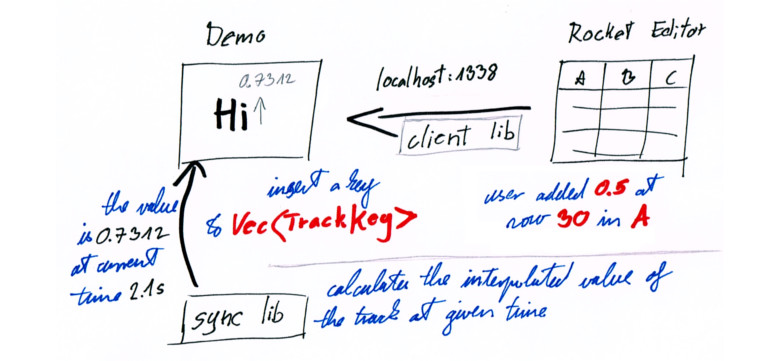 Demo
Rocket Editor
0.7312
Hi
localhost:1338
A B C
client lib
insert a key
to Vec<TrackKey>
user added 0.5 at
row 30 in A
the value
is 0.7312
at current
time 2.1s
calculates the interpolated value of
the track at given time
sync lib